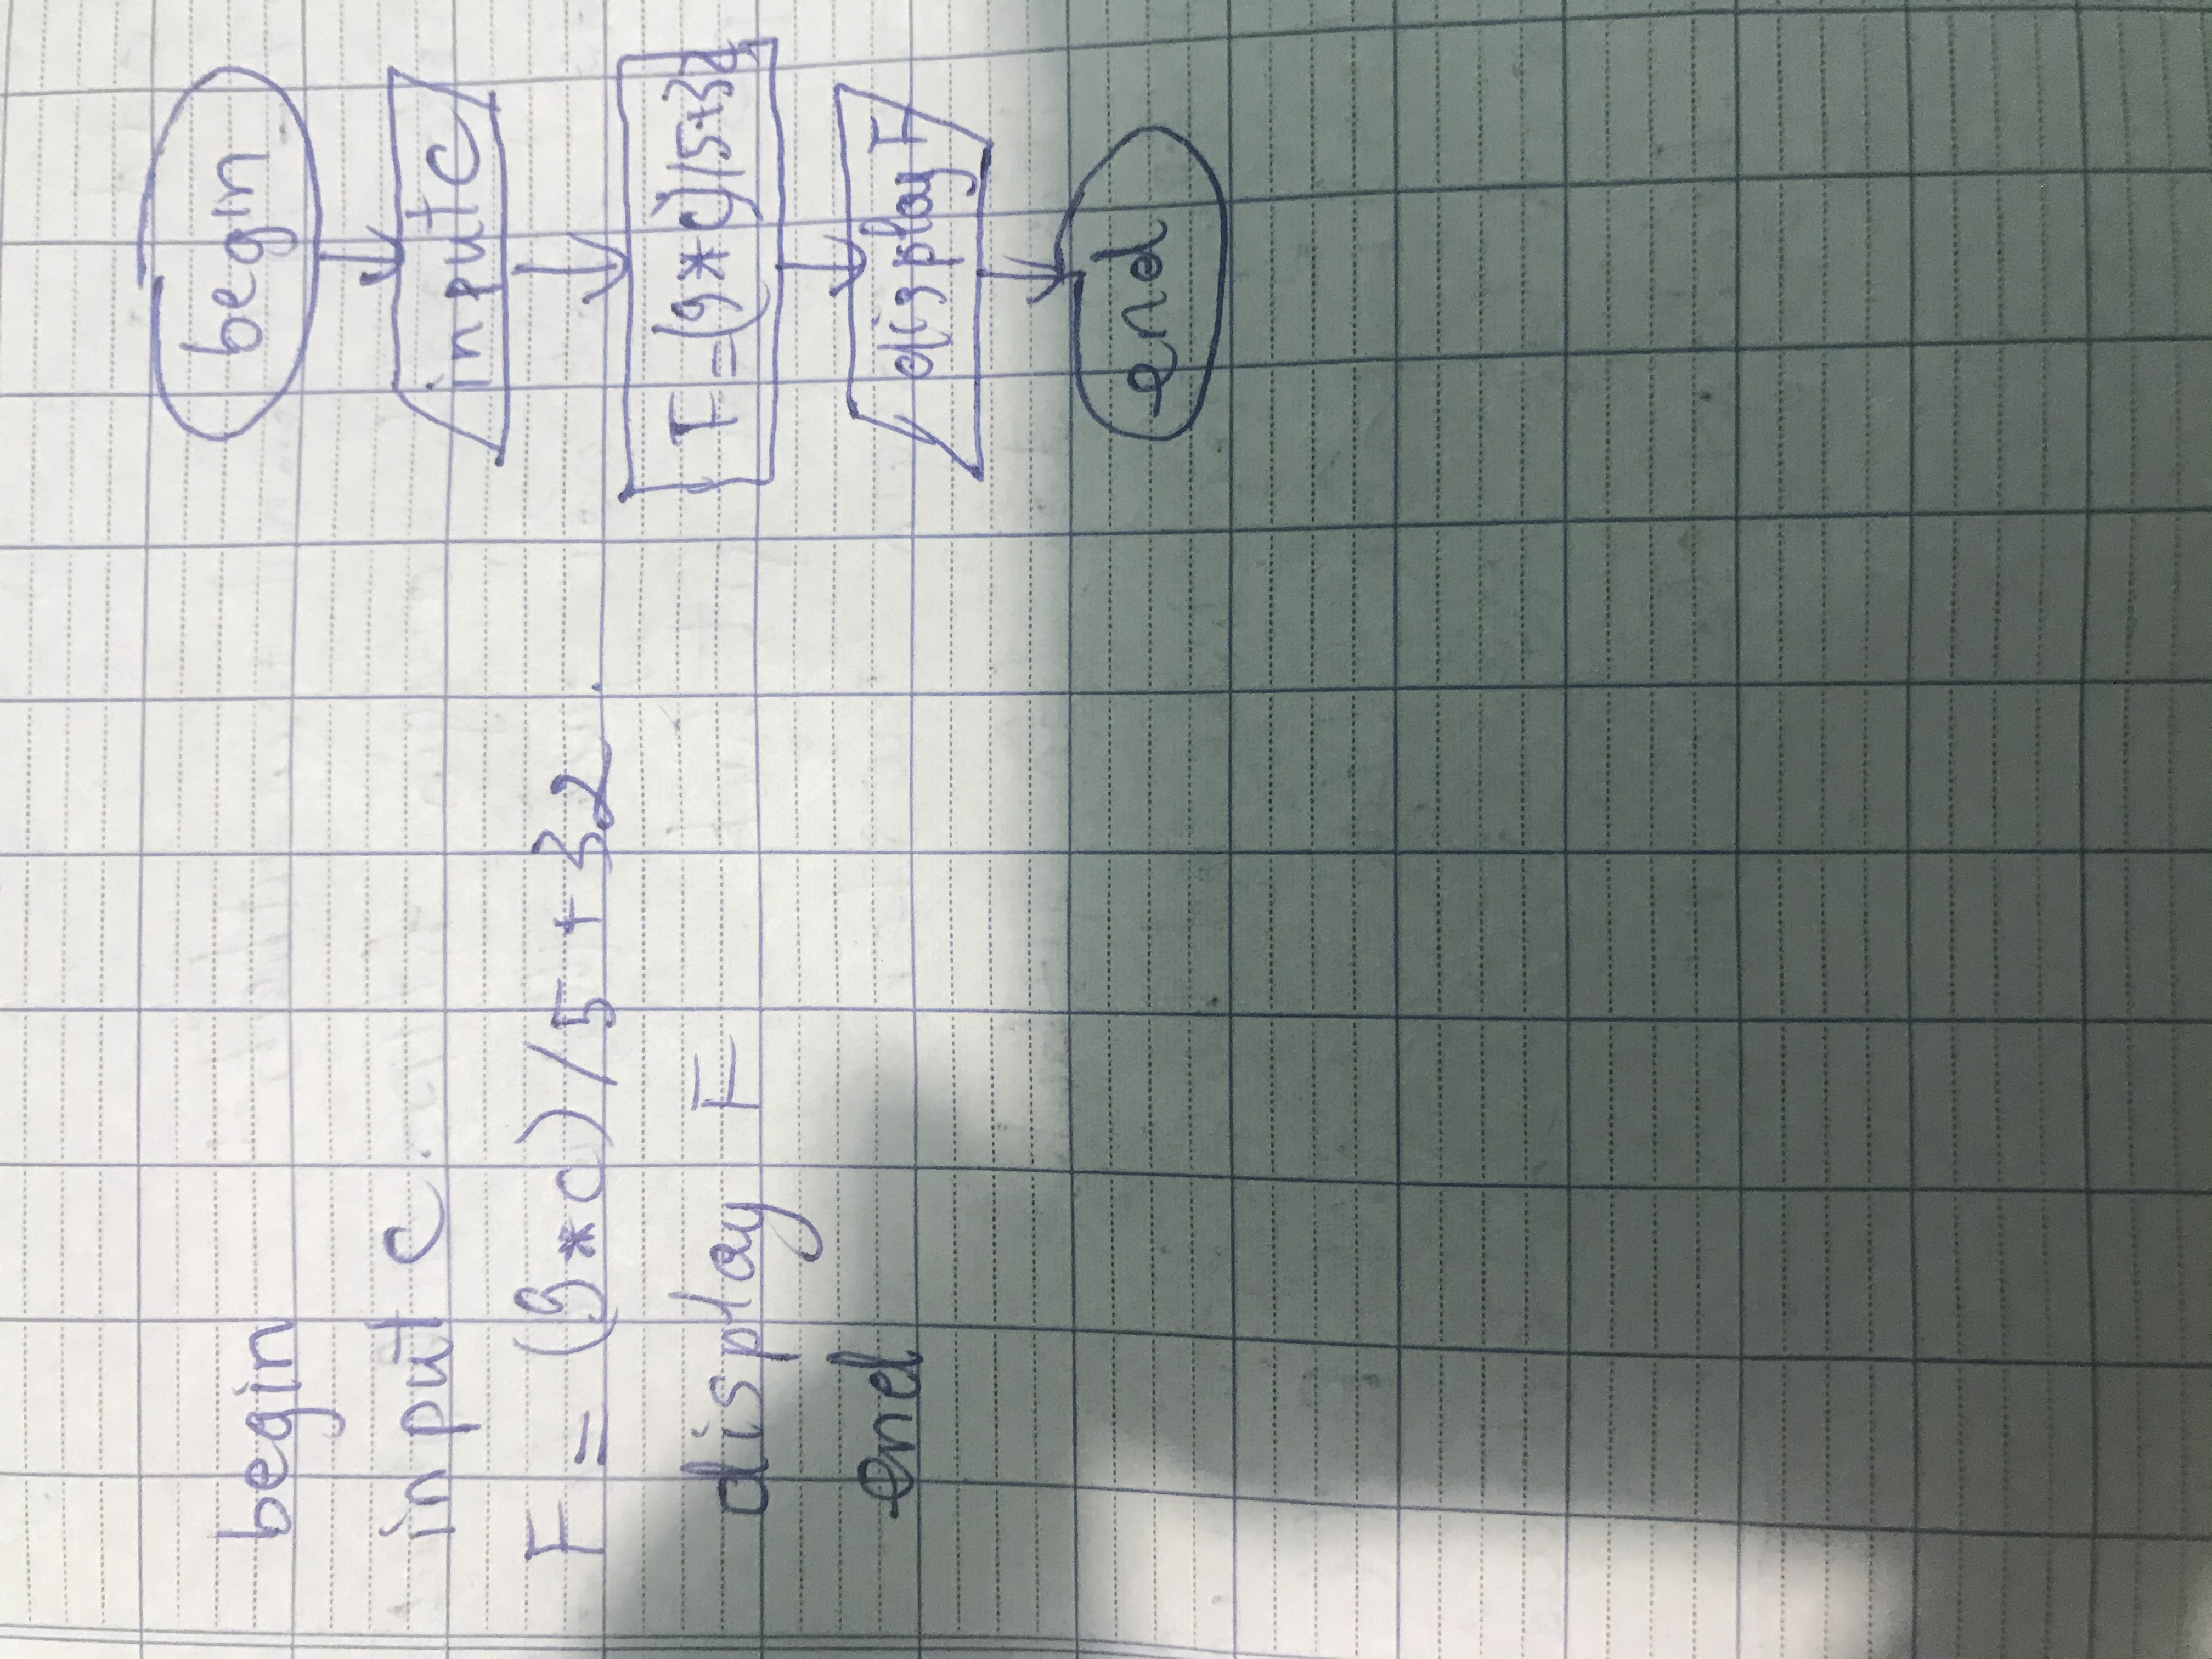 begin
input C.
F = (9*C)/5 + 32.
display F
end
begin
input C
F=(9*C)/5+32
display F
end